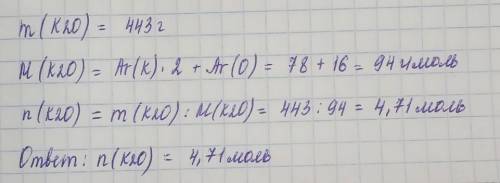 m(K2O) = 443 г
M(K2O) = Ar(K)·2 + Ar(O) = 78 + 16 = 94 г/моль
n(K2O) = m(K2O) : M(K2O) = 443 : 94 = 4,71 моль
Ответ: n(K2O) = 4,71 моль